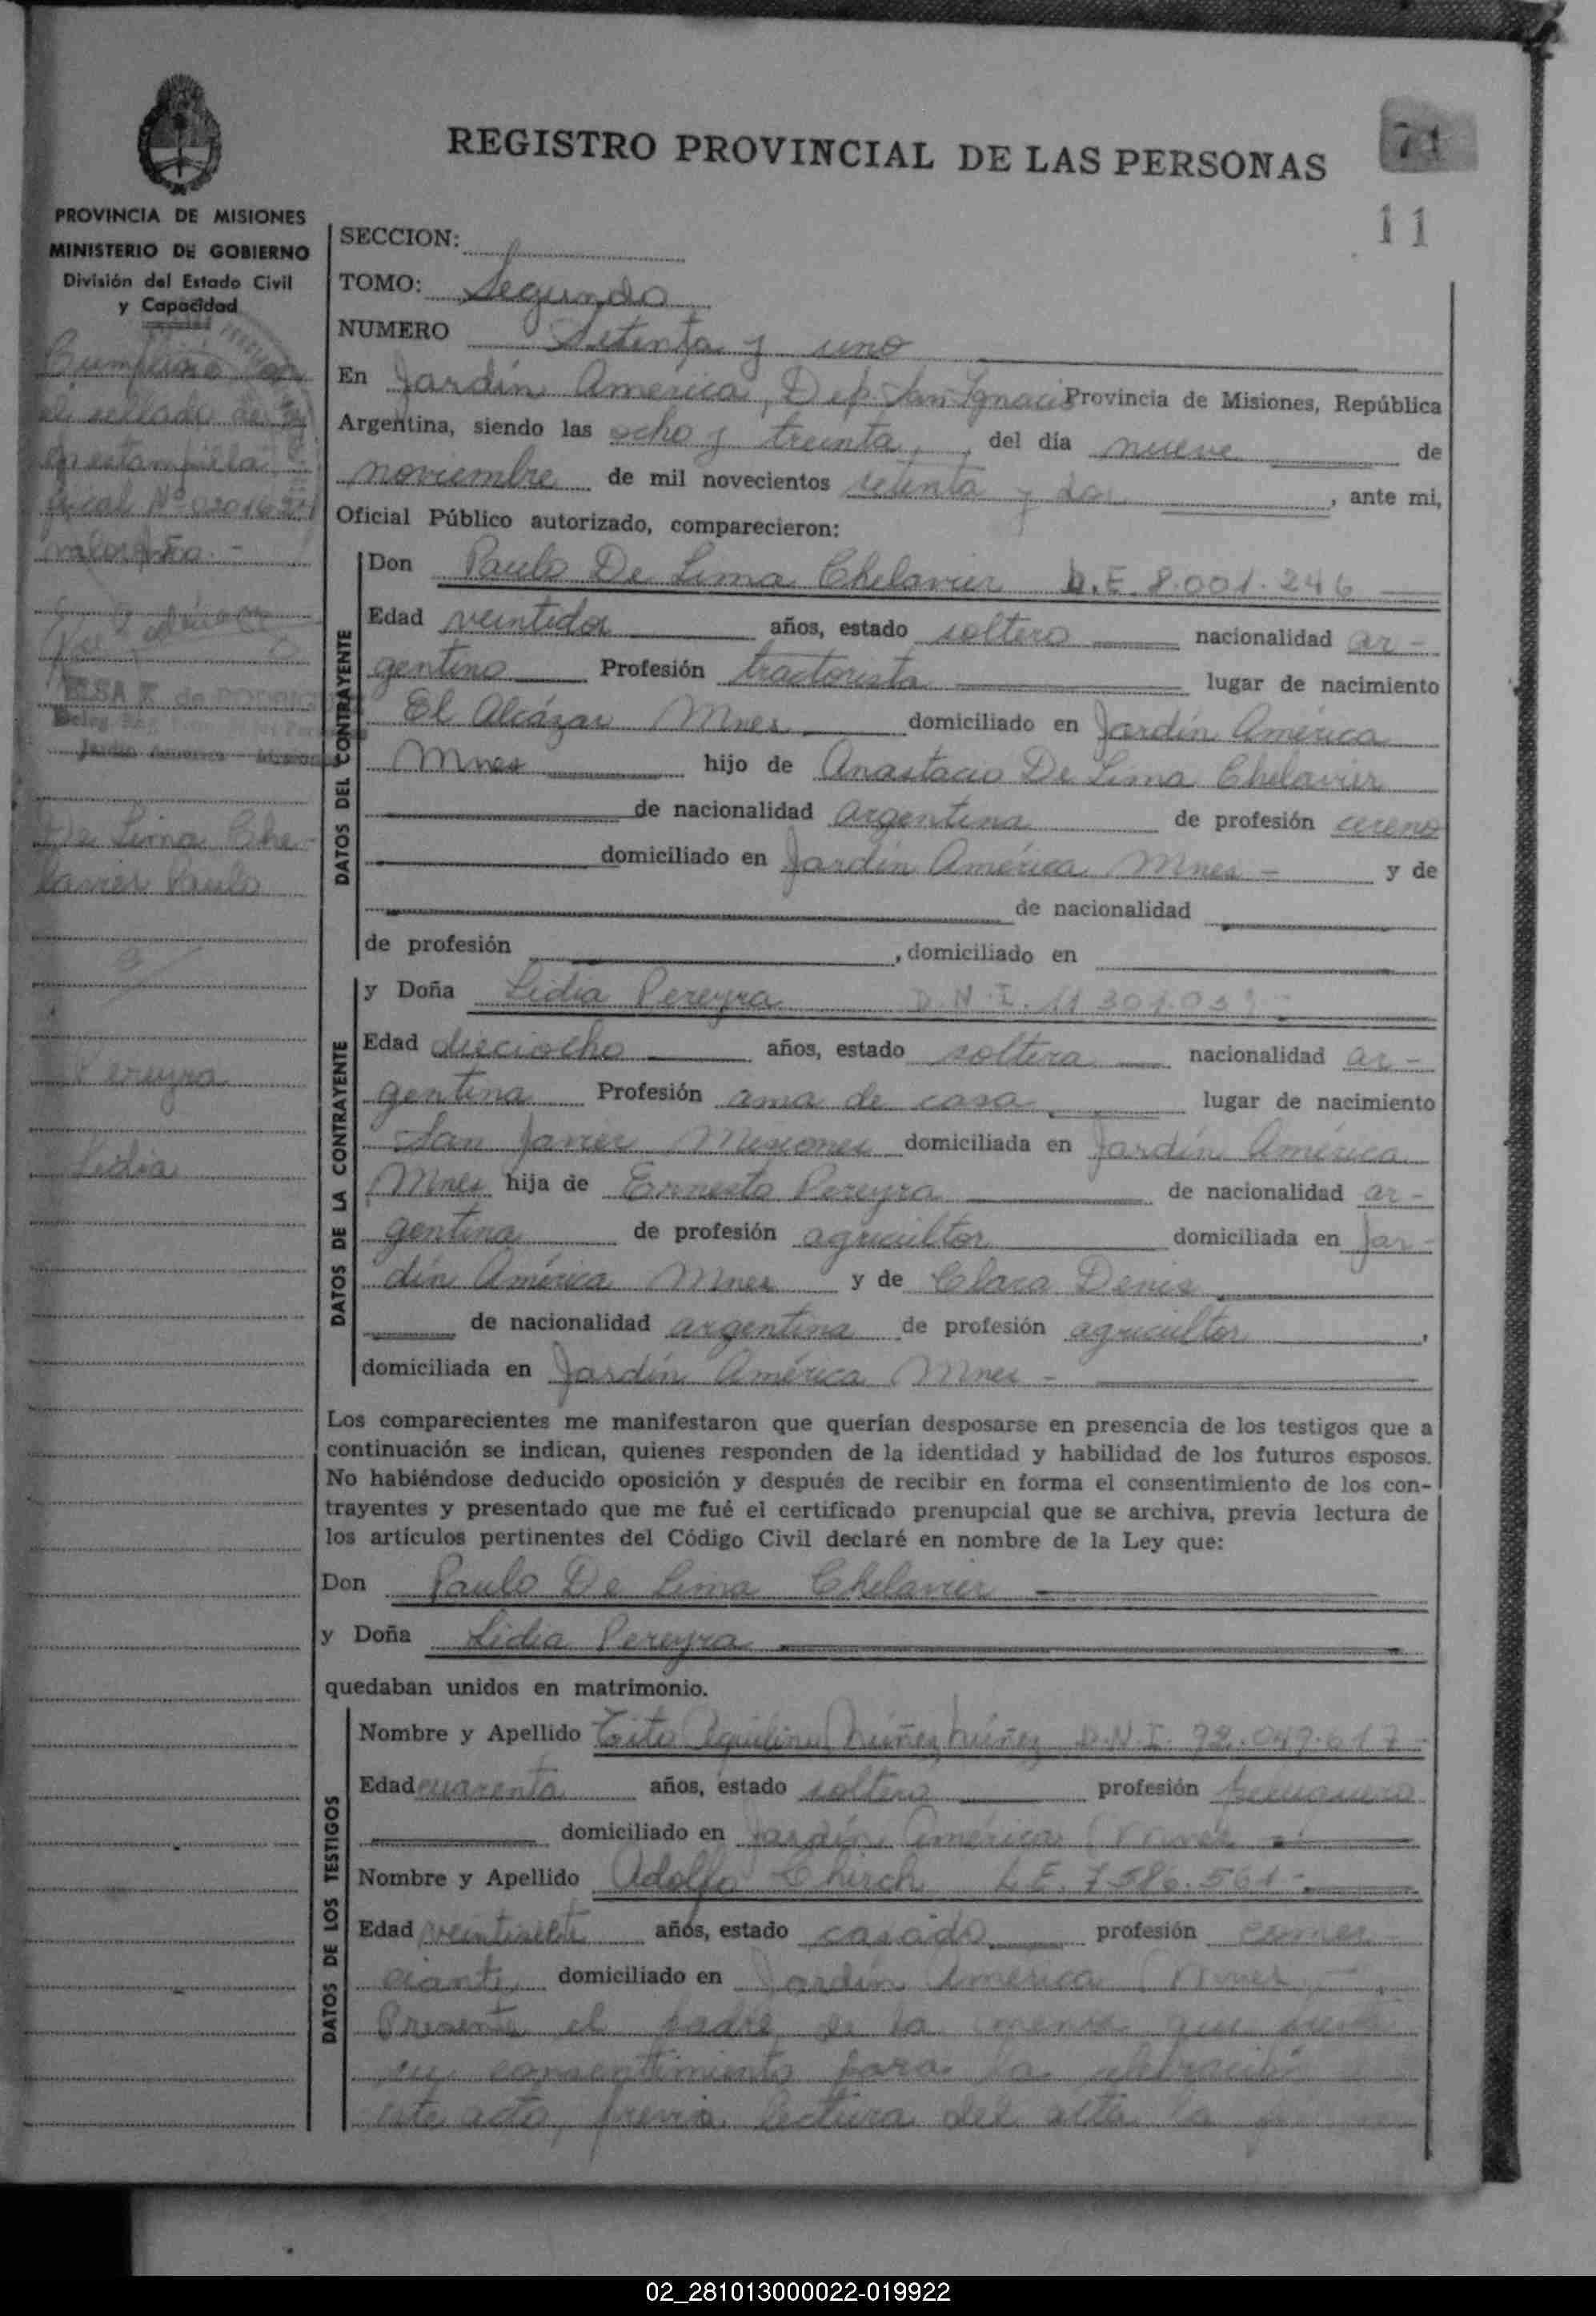 REGISTRO PROVINCIAL DE LAS PERSONAS
71
11
PROVINCIA DE MISIONES
MINISTERIO DE GOBIERNO
División del Estado Civil
y Capacidad
Cumplióse con
el sellado de ley
en estampilla
fiscal Nº
De Lima Che
lavier Paulo
Pereyra
Lidia
SECCION:
TOMO: Segundo
NUMERO Setenta y uno
En Jardín America, Dep. San Ignacio Provincia de Misiones, República
Argentina, siendo las ocho y treinta, del día nueve de
noviembre de mil novecientos setenta y dos, ante mi,
Oficial Público autorizado, comparecieron:
DATOS DEL CONTRAYENTE
Don Paulo De Lima Chelavier D.E. 8.001.246
Edad veintidos años, estado soltero nacionalidad ar-
gentino Profesión tractorista lugar de nacimiento
El Alcázar Mnes domiciliado en Jardín América
Mnes hijo de Anastacio De Lima Chelavier
de nacionalidad argentina de profesión sereno
domiciliado en Jardín América Mnes - y de
de nacionalidad
de profesión , domiciliado en
DATOS DE LA CONTRAYENTE
y Doña Lidia Pereyra D.N.I. 11.301.03
Edad dieciocho años, estado soltera nacionalidad ar-
gentina Profesión ama de casa lugar de nacimiento
San Javier Misiones domiciliada en Jardín América
Mnes hija de Ernesto Pereyra de nacionalidad ar-
gentina de profesión agricultor domiciliada en Jar-
dín América Mnes y de Clara Denis
de nacionalidad argentina de profesión agricultor,
domiciliada en Jardín América Mnes -
Los comparecientes me manifestaron que querían desposarse en presencia de los testigos que a
continuación se indican, quienes responden de la identidad y habilidad de los futuros esposos.
No habiéndose deducido oposición y después de recibir en forma el consentimiento de los con-
trayentes y presentado que me fué el certificado prenupcial que se archiva, previa lectura de
los artículos pertinentes del Código Civil declaré en nombre de la Ley que:
Don Paulo De Lima Chelavier
y Doña Lidia Pereyra
quedaban unidos en matrimonio.
DATOS DE LOS TESTIGOS
Nombre y Apellido Tito Aquilino Núñez Núñez D.N.I. 92.047.617
Edad cuarenta años, estado soltero profesión peluquero
domiciliado en Jardín América Mnes -
Nombre y Apellido Adolfo Chirch L.E. 7.586.561-
Edad veintisiete años, estado casado profesión comer-
ciante domiciliado en Jardín América Mnes -
Presente el padre de la menor que presta
su consentimiento para la celebración
este acto, previa lectura del acta la
02_281013000022-019922